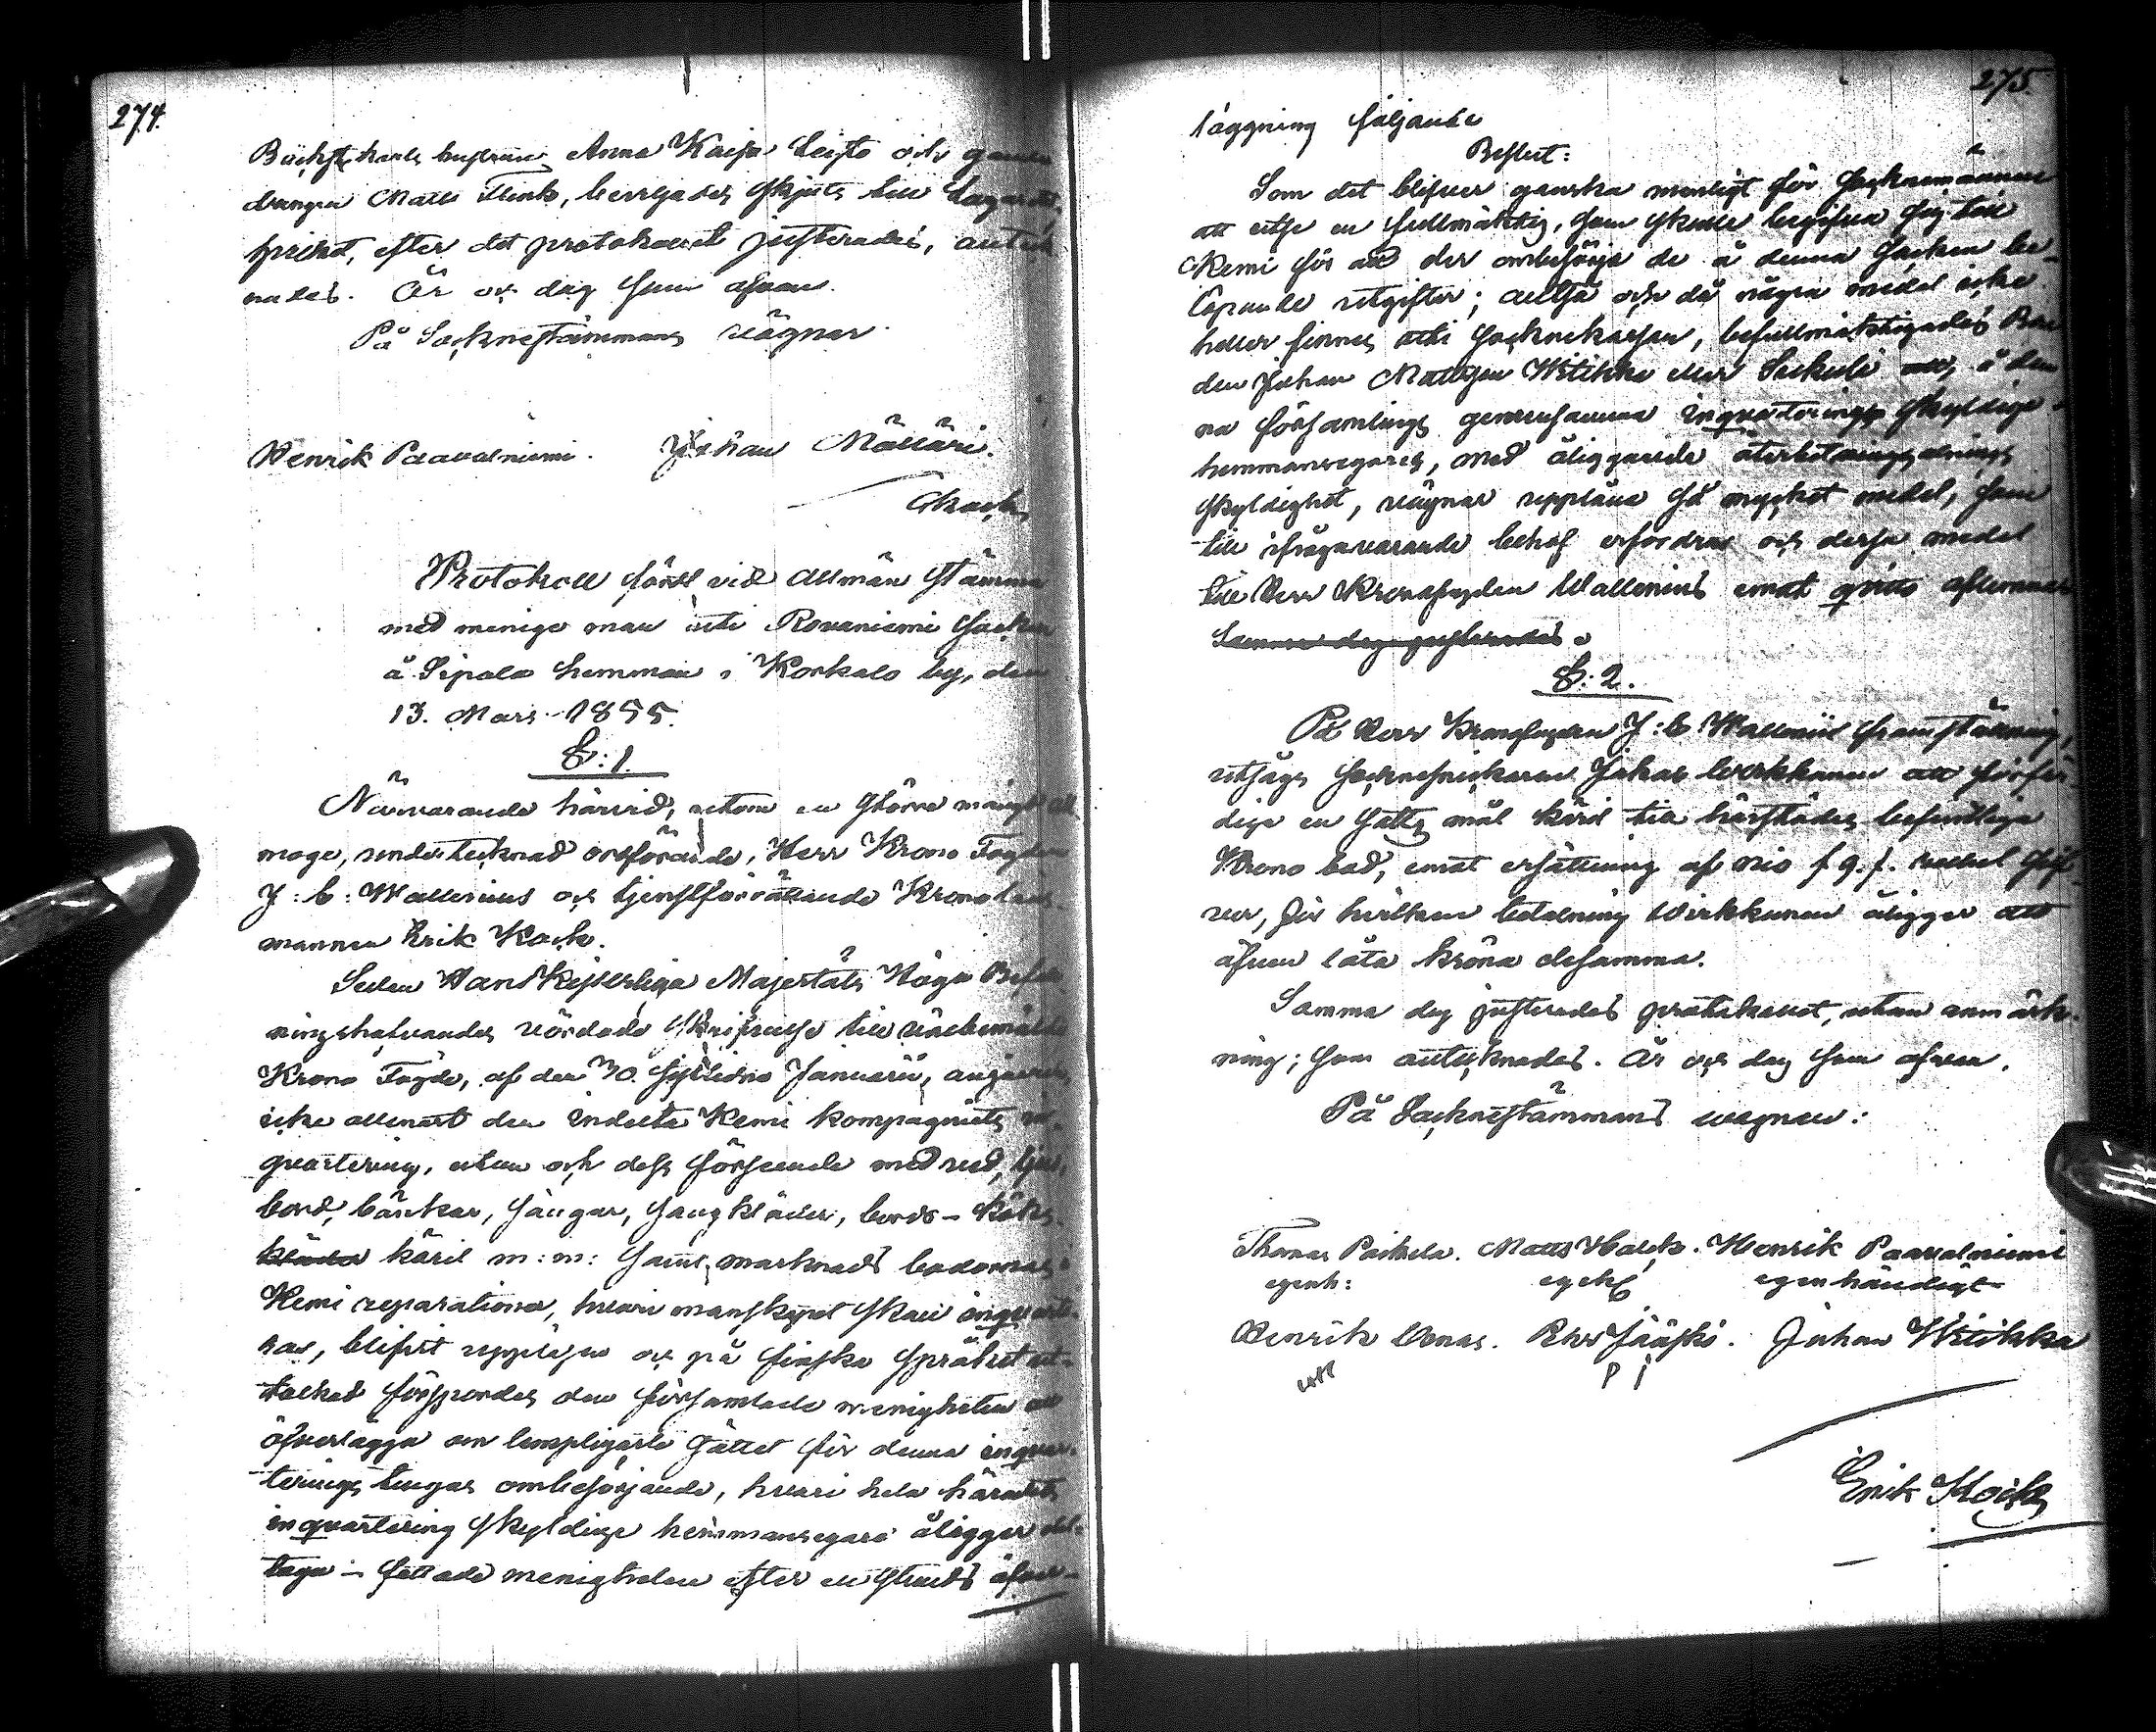 274.
hustrun Anna Kaisa Leisto och gamla
drängen Matts Flink, beviljades skjuts till Lazarettet,
hvilket, efter det protokollet justerades, anteck-
nades. År och dag som ofvan.
På Socknestämmans vägnar
Henrik Paavalniemi. Johan Määttäri.
EKoch
Protokoll fördt vid allmän stämma
med menige man uti Rovaniemi Socken
å Sipola hemman i Korkalo by, den
13. Mars 1855.
§: 1.
Närvarande härvid, utom en större mängd all-
moge, undertecknad ordförande, Herr Krono Fogden
J: C: Wallenius och tjenstförrättande Kronoläns-
mannen Erik Koch.
Sedan Hans Kejserliga Majestäts Höga Befall-
ningshafvandes vördade skrifvelse till välbemälte
Krono Fogde, af den 30. sistlidne Januarii, angående
icke allenast den indelta Kemi kompagniets in-
qvartering, utan och dess förseende med ved, ljus,
bord, bänkar, sängar, sängkläder, bords- köks-
kläder käril m: m: samt marknads bodarnas i
Kemi reparationer, hvari manskapet skall inqvarte-
ras, blifvit uppläsen och på finska språket ut-
tolkad förspordes den församlade menigheten att
öfverlägga om lempligaste sättet för denna inqvar-
terings tungas ombesörjande, hvari hela häradets
inqvartering skyldige hemmansegare åligger del-
taga – fattade menigheten efter en stunds öfver-
275.
läggning följande
Beslut:
Som det blifver ganska menligt för Socknemännen
att utse en fullmäktig, som skulle begifva sig till
Kemi för att der ombesörja de å denna Socken be-
löpande utgifter; alltså och då några medel icke
heller finnes uti Socknekassan, befullmäktigades Bon-
den Johan Mattsson Wiitikka eller Sukuli att, å den-
na församlings gemensamma inqvarterings skyldige
hemmansegares, med åliggande återbetalnings
skyldighet, vägnar upplåna så mycket medel, som
till ifrågavarande behof erfordras och dessa medel
till Herr Kronofogden Wallenius emot qvitto aflemna
Samma dag justerades
§: 2.
På Herr Kronofogden J: C Wallenii framställning,
utsågs Socknesnickaren Johan Wirkkunen att förfär-
diga en satts mål käril till härstädes befintliga
Krono bod, emot ersättning af nio f 9. f. rubel Silf-
ver, för hvilken betalning Wirkkunen åligger att
äfven låta kröna desamma.
Samma dag justerades protokollet, utan anmärk-
ning; som antecknades. År och dag som ofvan.
På Socknestämmans vägnar:
Thomas Poikela. Matts Halck. Henrik Paavalniemi
egenh: egenh egenhändigt
Henrik Ulonas. Johan Wiitikka
Erik Koch